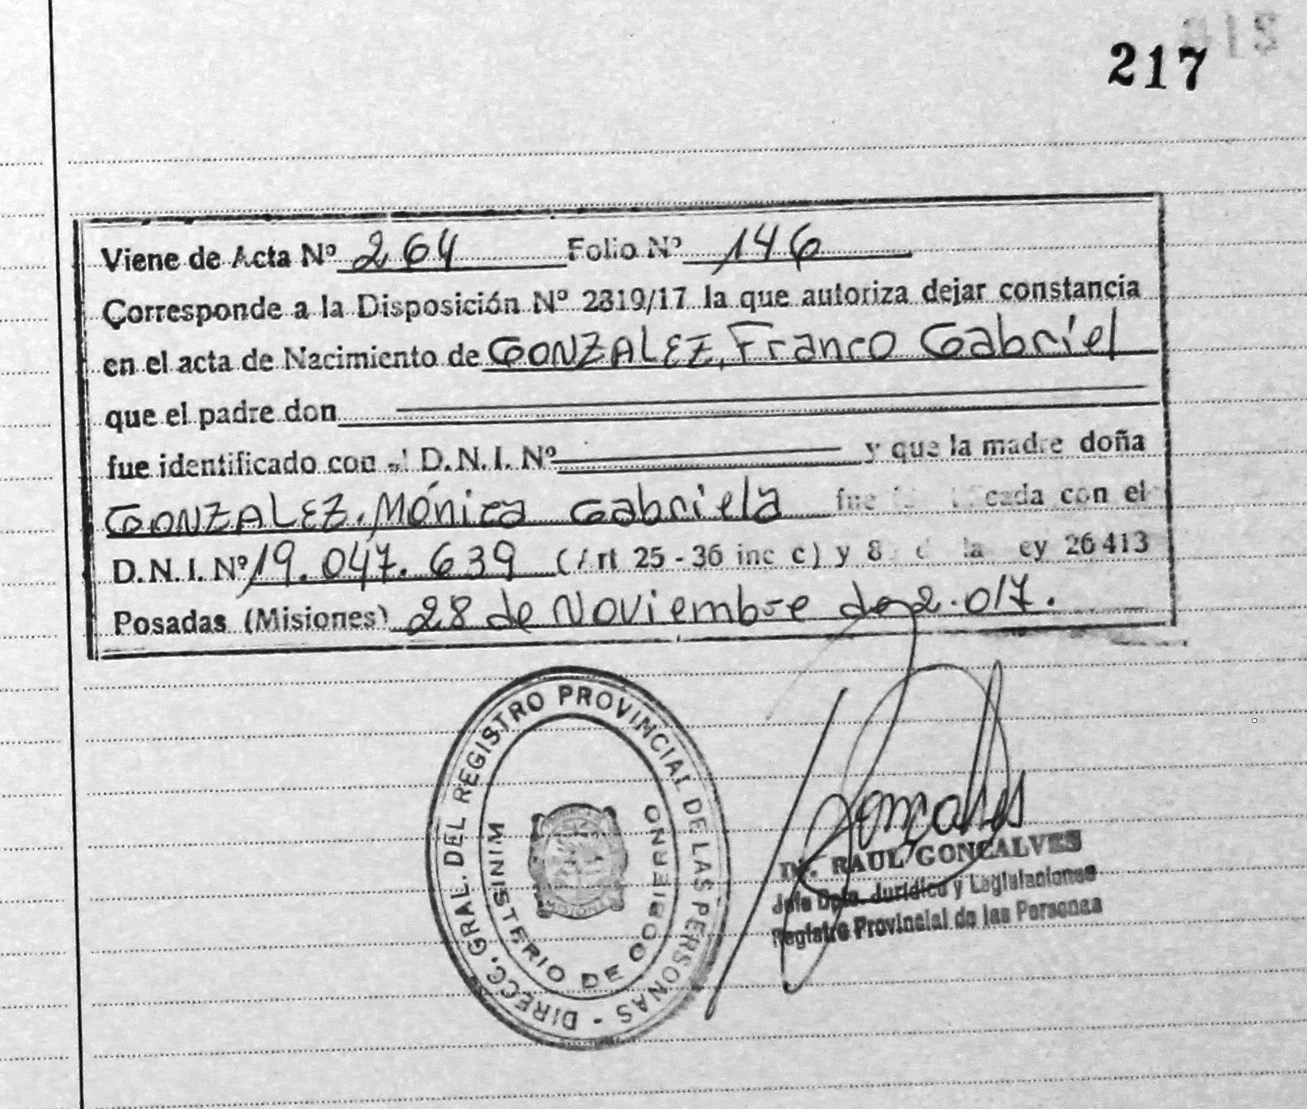 217
Viene de Acta Nº 264 Folio Nº 146
Corresponde a la Disposición Nº 2319/17 la que autoriza dejar constancia
en el acta de Nacimiento de GONZALEZ, Franco Gabriel
que el padre don
fue identificado con el D.N.I. Nº y que la madre doña
GONZALEZ, Mónica Gabriela fue cada con el
D.N.I. Nº 19.047.639 (Art 25 - 36 inc c) y 8 d la ey 26413
Posadas (Misiones) 28 de Noviembre de 2.017.
DIRECC. GRAL. DEL REGISTRO PROVINCIAL DE LAS PERSONAS -
MINISTERIO DE GOBIERNO
MISIONES
Gonçalves
RAUL GONCALVES
Jefe Dpto. Jurídico y Legislaciones
Registro Provincial de las Personas